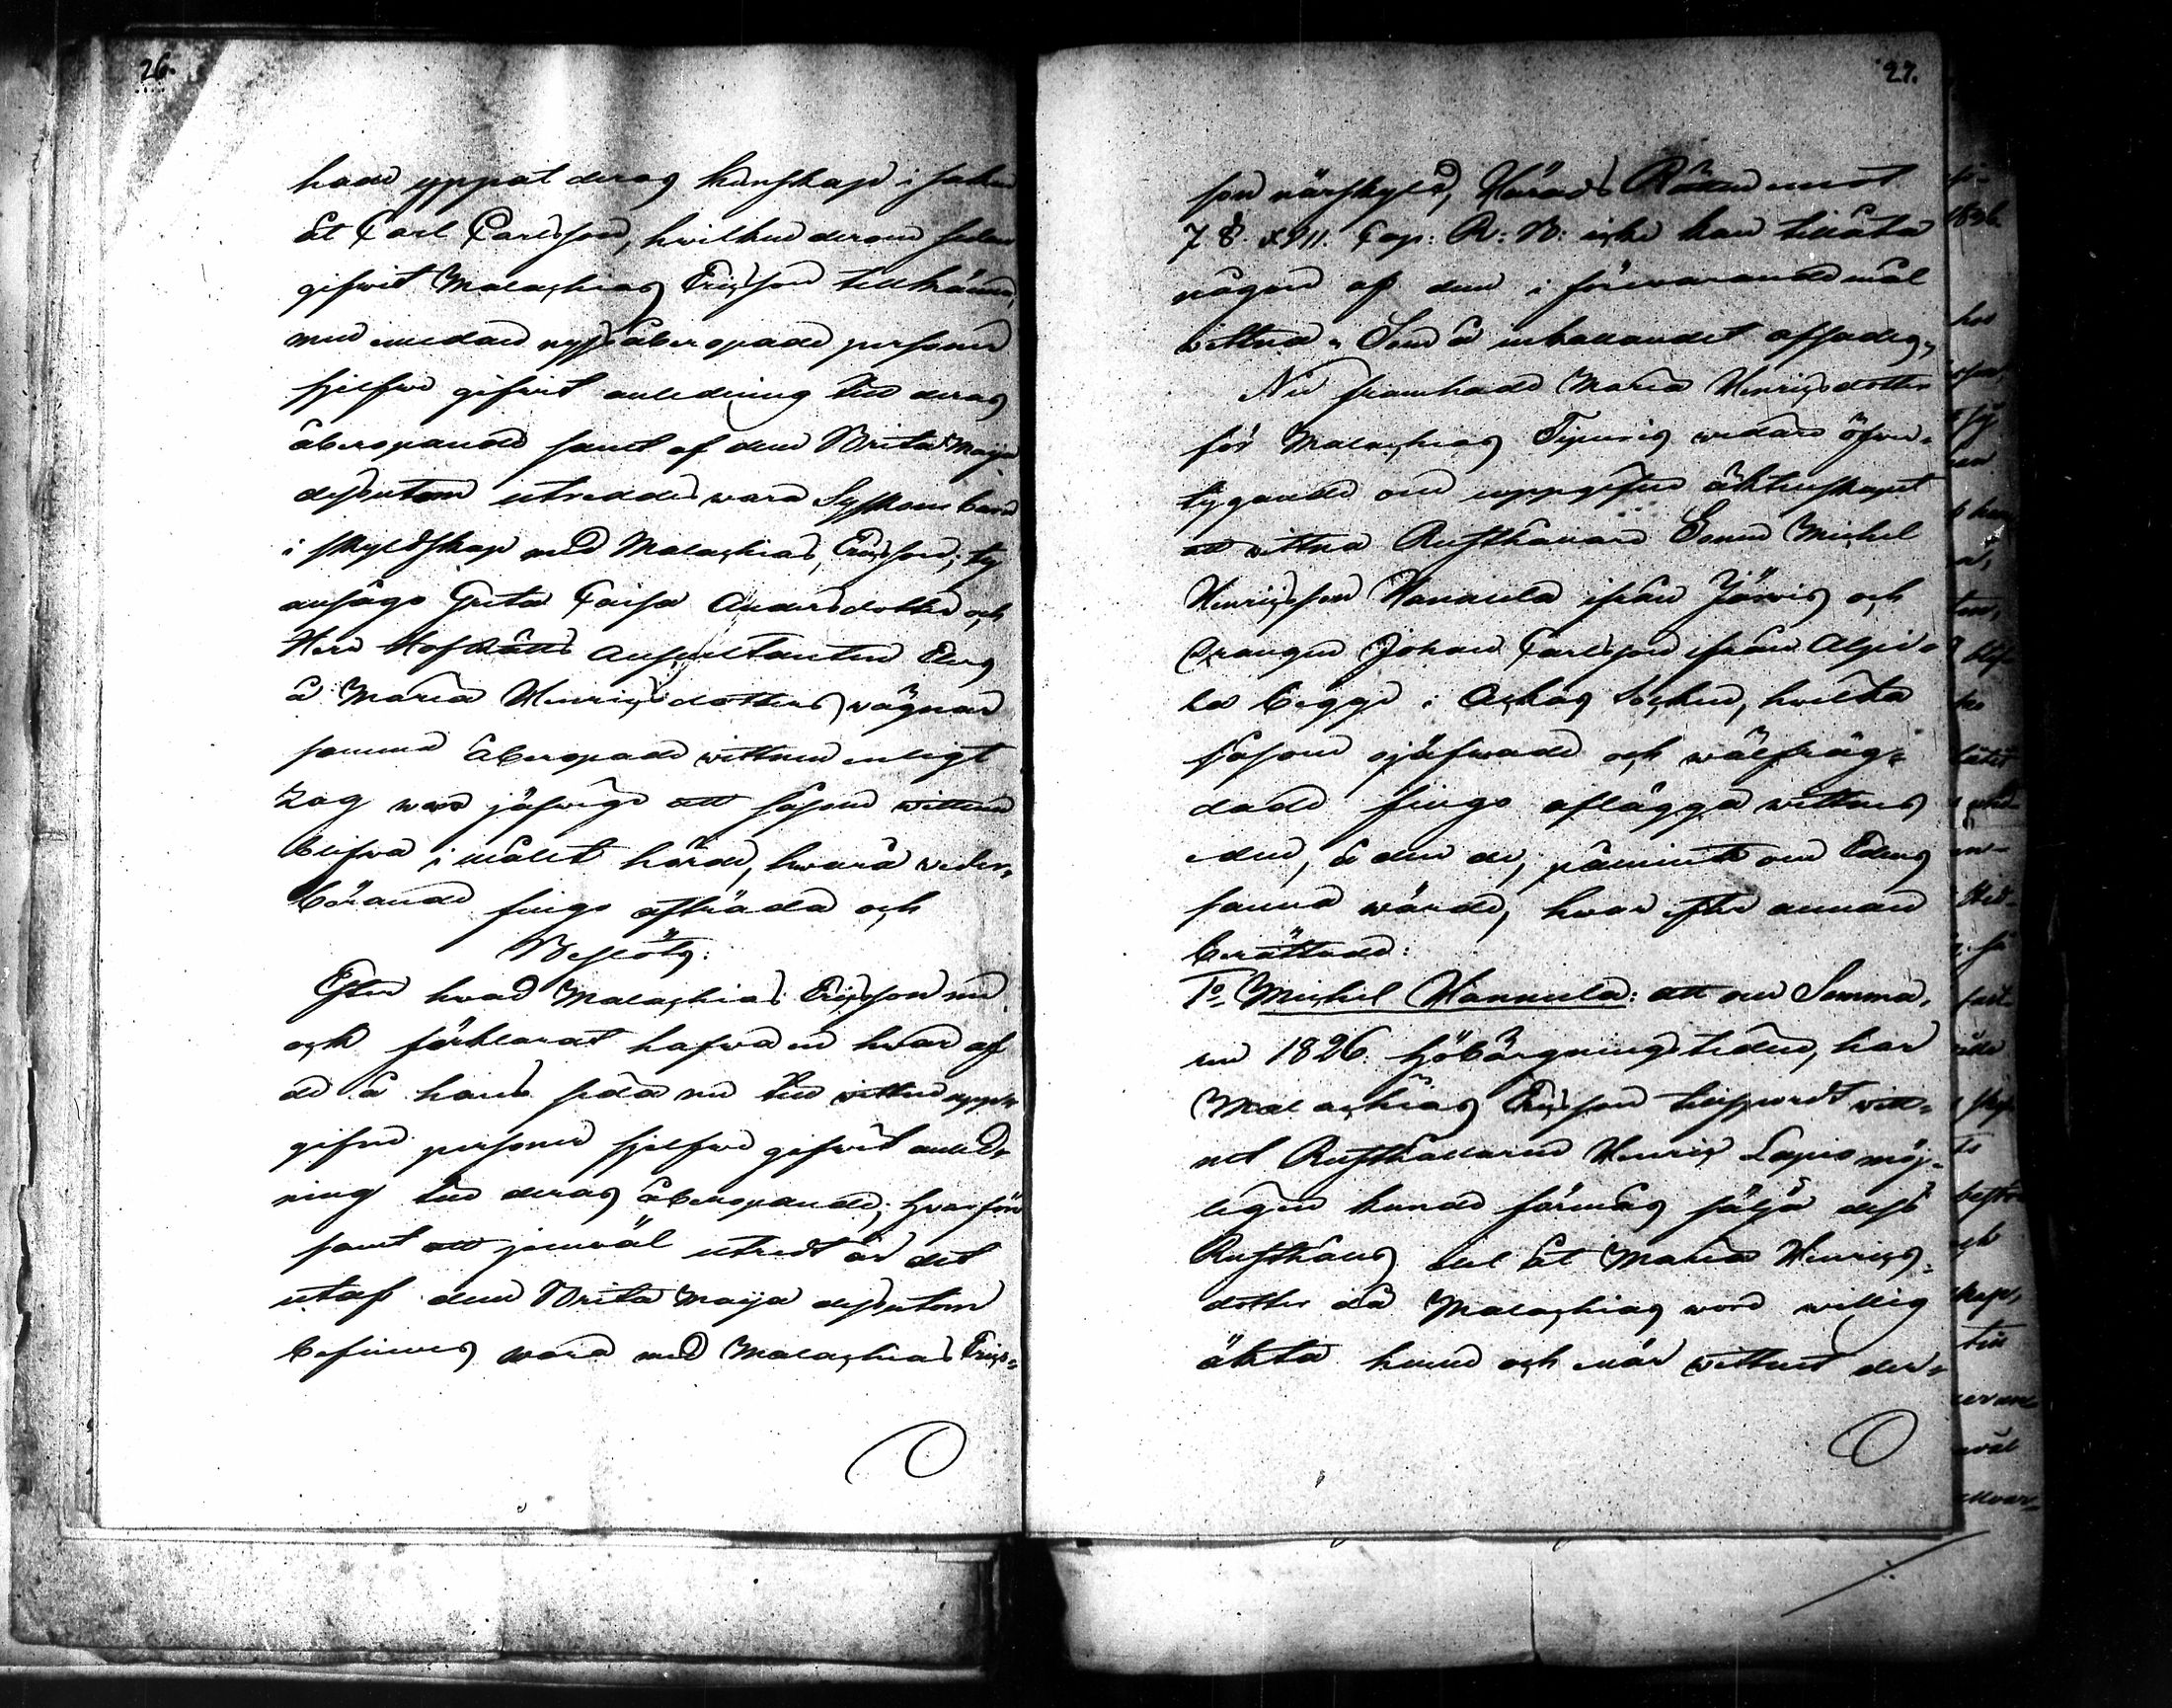 26.
hade yppat deras kunskap i saken
åt Carl Carlsson, hvilken derom sedan
gifwit Malachias Ericsson tillkänna,
men emedan nyss åberopade personer
sjelfve gifwit anledning till deras
åberopande samt af dem Brita Maja
dessutom utreddes wara Syskon barn
i skyldskap med Malachias Ericsson; ty
ansågo Greta Caisa Andersdotter och
Herr Hofrätts Auscultanten Elers
å Maria Henricsdotters wägnar
samme åberopade wittnen enligt
Lag wara jäfwige att såsom wittnen
blifwa i målet hörde, hwarå weder-
börande fingo afträda och
Beslöts:
Efter hwad Malachias Ericsson nu
och förklarat hafwa en hwar af
de å hans sida nu till wittnen upp-
gifne personer sjelfwe gifwit anled-
ning till deras åberopande; hwarföre
samt att jemwäl utredt är det
utaf dem Brita Maja dessutom
befinnes wara med Malachias Erics-
27.
son närskyld, Härads Rätten emot
7 §. XVII. Cap: R: B: icke kan tillåta
någon af dem i förewarande mål
wittna. Som å inkallandet afsades.
Nu framhade Maria Henricsdotter
för Malachias widare öfwer-
tygande om uppgifne äktenskapet
att wittna Rusthållaren Michel
Henricsson Hannula ifrån Järvis och
Drängen Johan Carlsson ifrån
la begge i Ackas Socken, hvilka
såsom ojäfwade och wälfräg-
dade fingo aflägga wittnes
eden, å den de, påminte om Edens
sanna wärde, hwar efter annan
berättade:
1o. Michel Hannula: att om Somma-
ren 1826 höbärgningstiden, har
Malachias Ericsson tillspordt witt-
net Rusthållaren Henric Lapis möj-
ligen kunde förmås sälja dess
Rusthålls del åt Maria Henrics-
dotter då Malachias wore willig
äkta henne och när wittnet der-